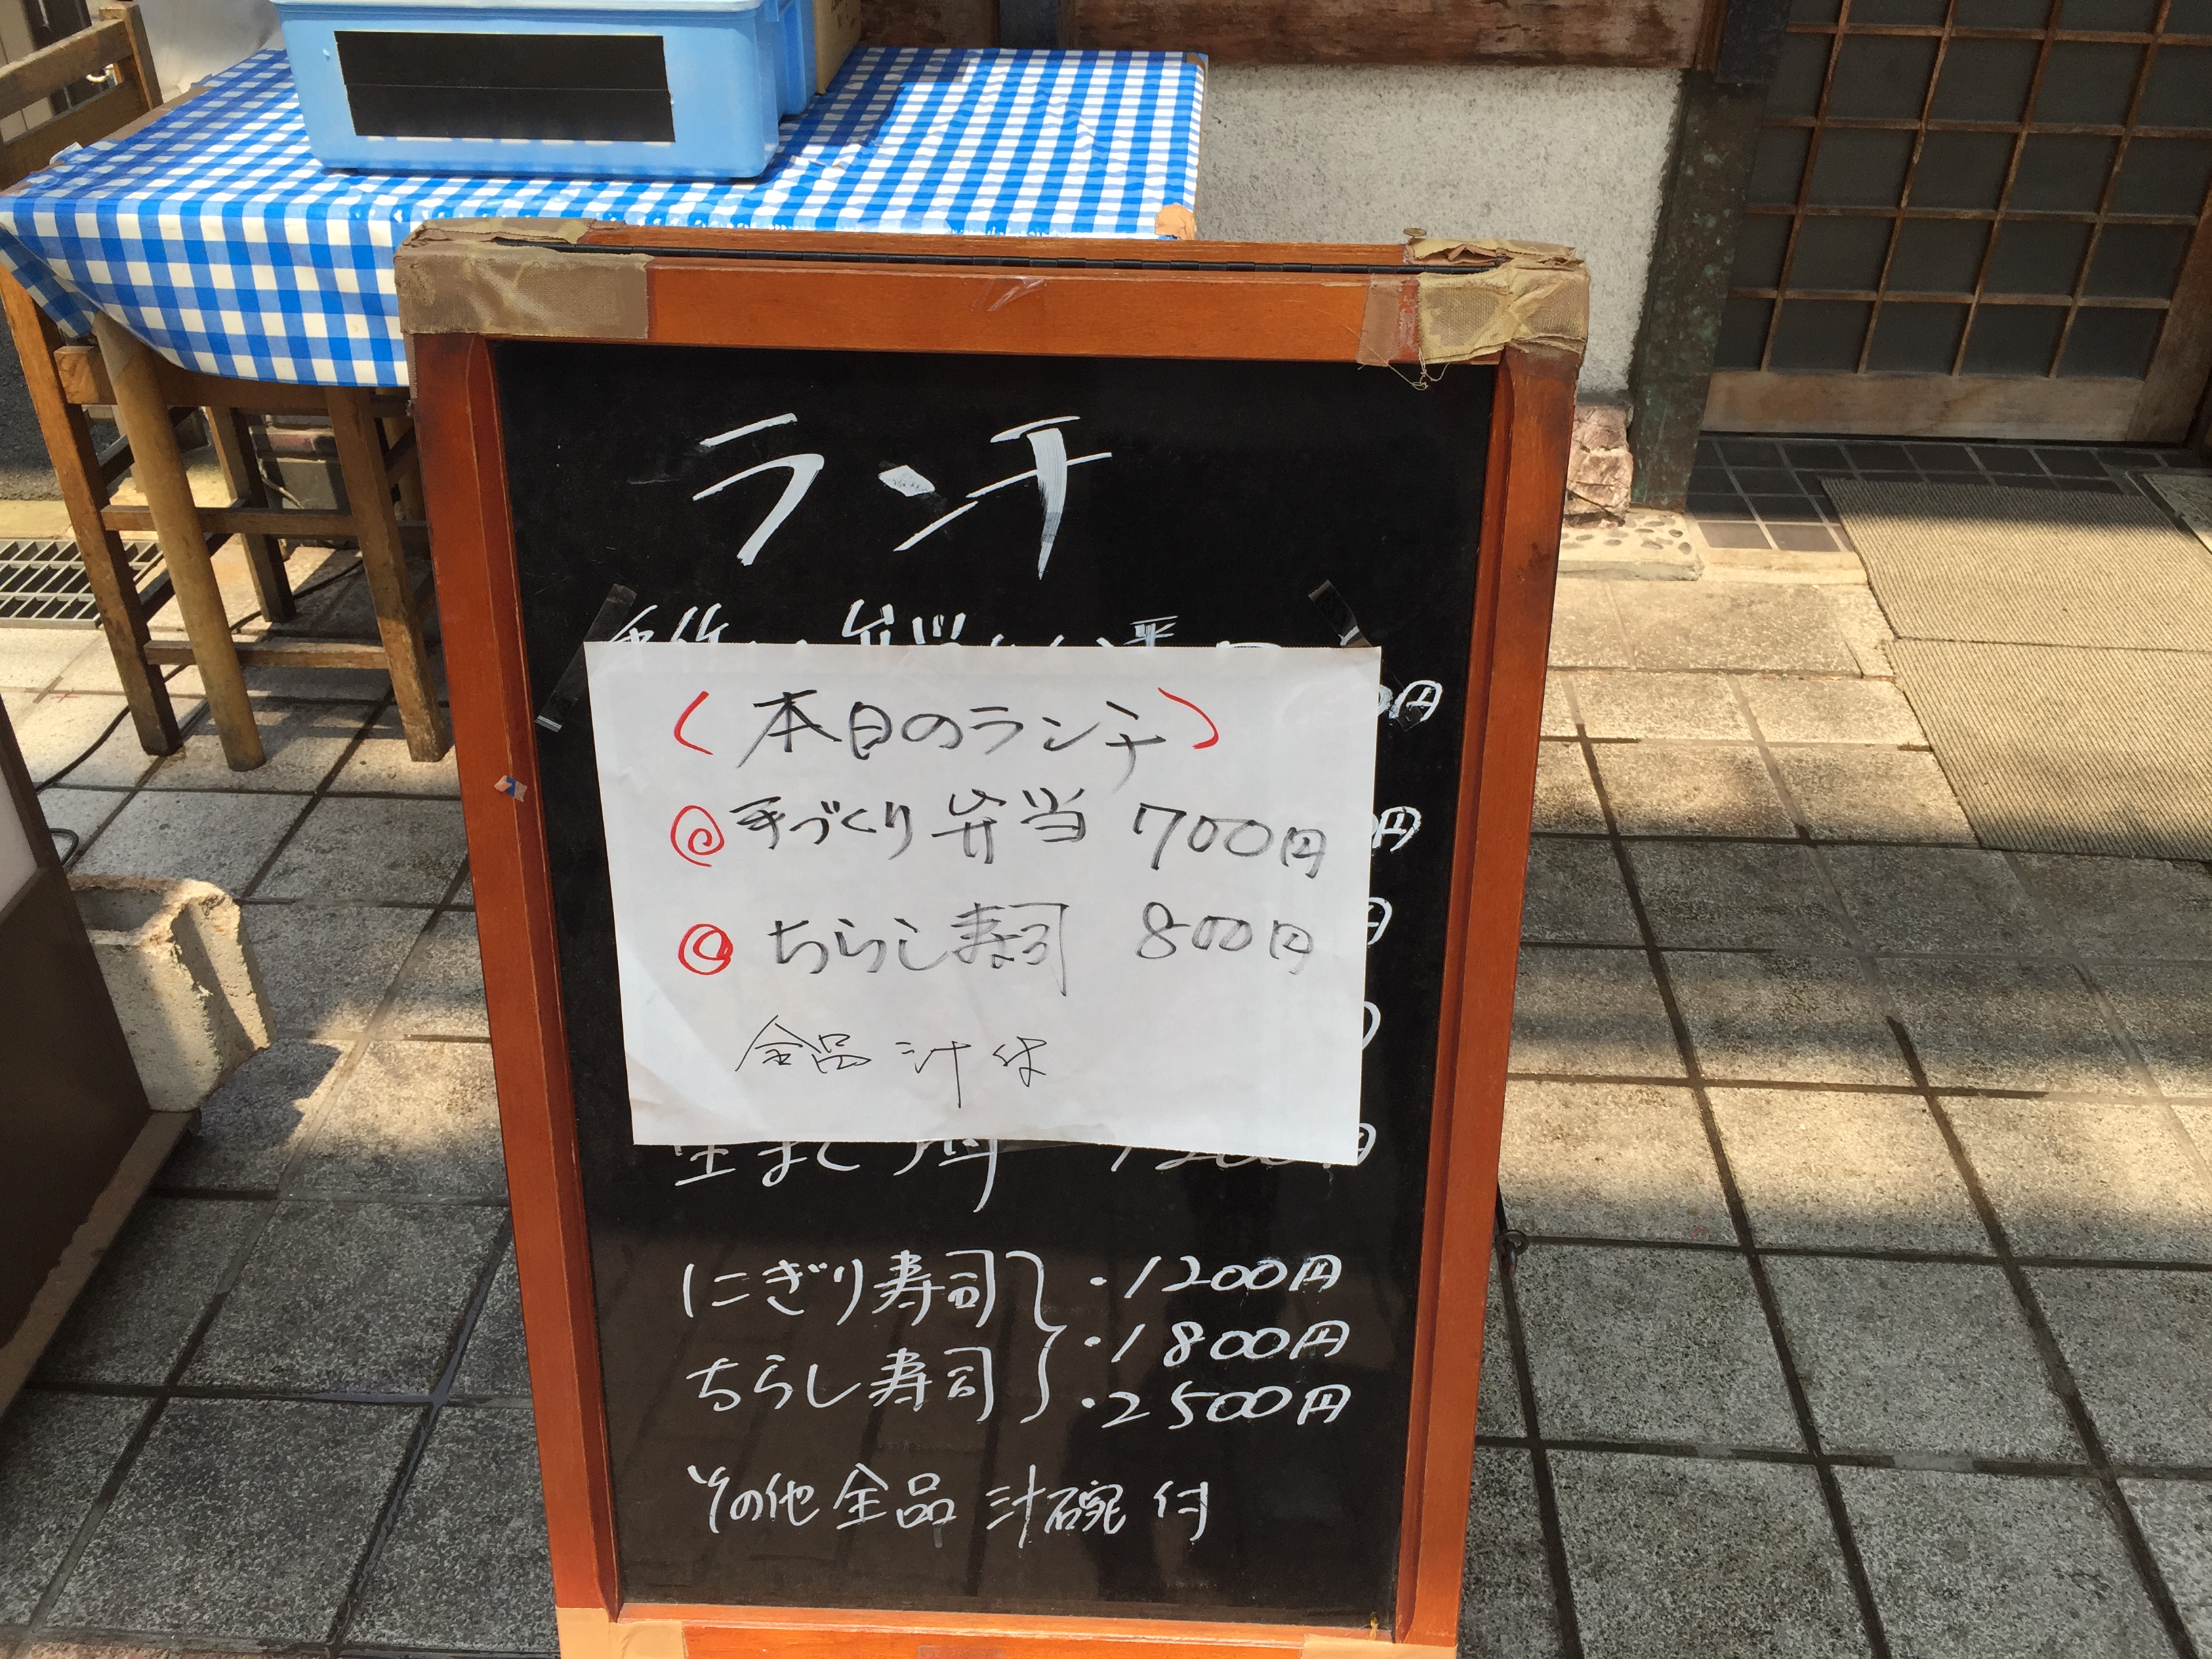 ランチ
(本日のランチ)
手づくり弁当 700円
ちらし寿司 800円
全品 汁付
生まぐろ丼 1200円
にぎり寿司
ちらし寿司
・1200円
・1800円
・2500円
その他全品 汁碗付